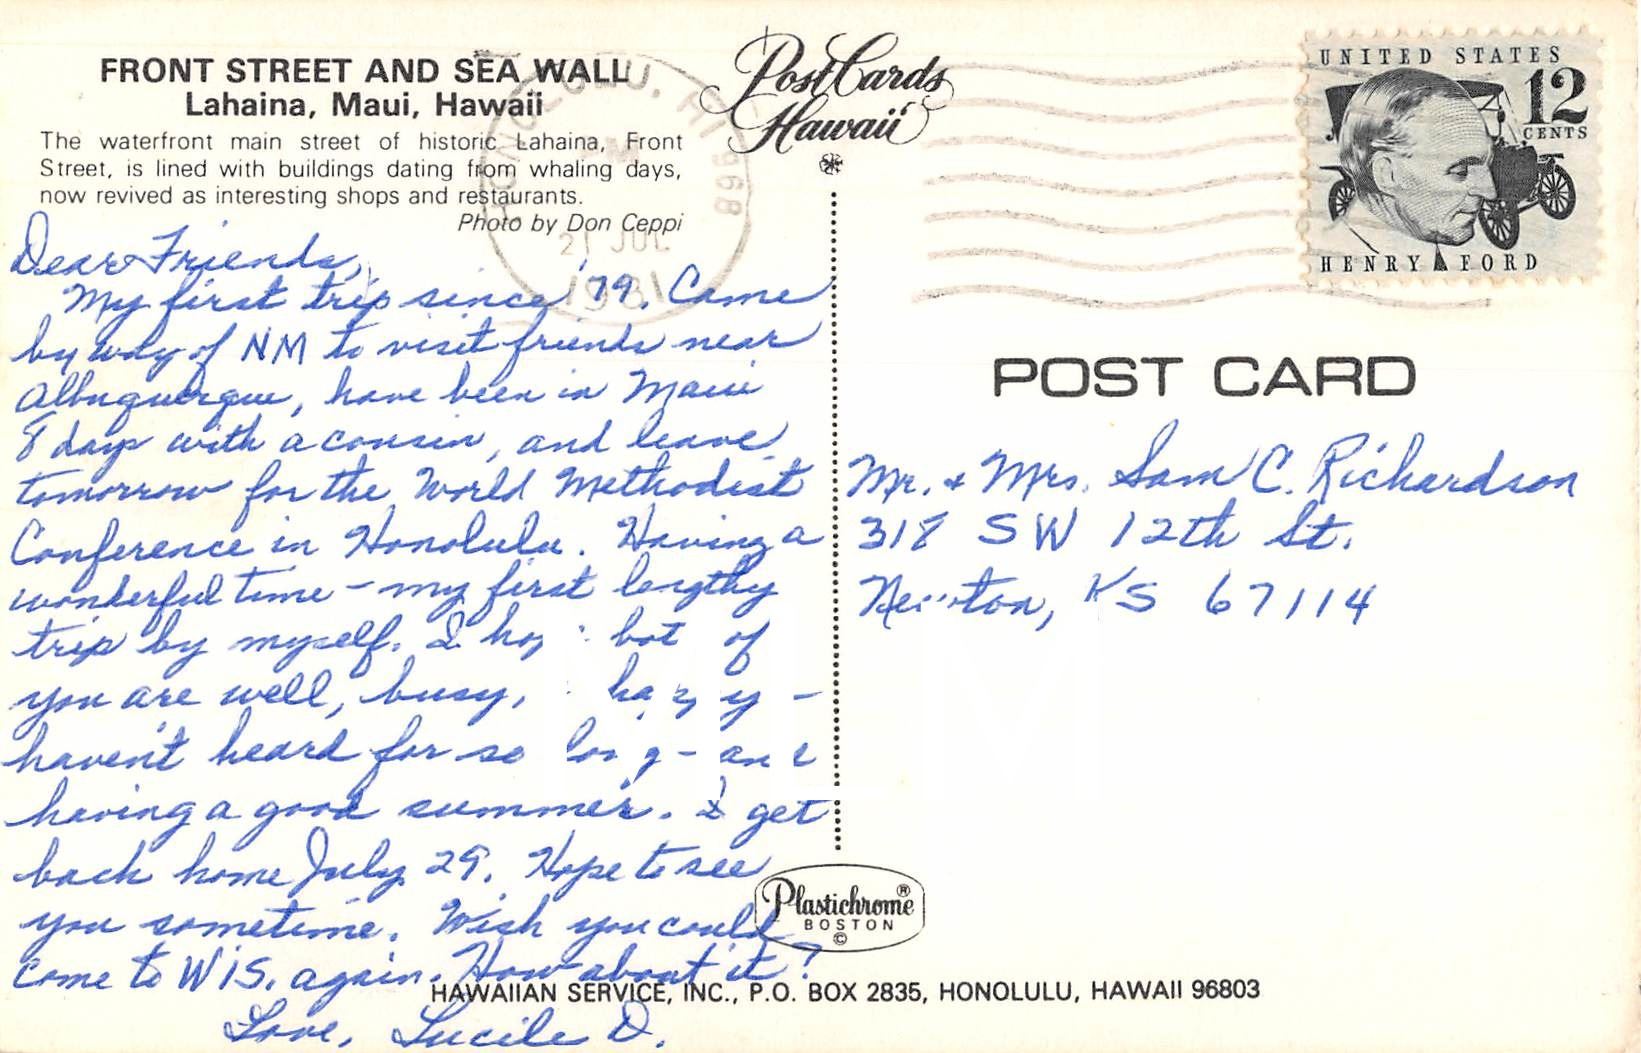 FRONT STREET AND SEA WALL
Lahaina, Maui, Hawaii
The waterfront main street of historic Lahaina, Front
Street, is lined with buildings dating from whaling days,
now revived as interesting shops and restaurants.
Photo by Don Ceppi
Dear Friends,
My first trip since '79. Came
by way of NM to visit friends near
Albuquerque, have been in Maui
8 days with a cousin, and leave
tomorrow for the World Methodist
Conference in Honolulu. Having a
wonderful time – my first lengthy
trip by myself. I of
you are well, busy, –
haven't heard for so long –
having a good summer. I get
back home July 29. Hope to see
you sometime. Wish you could
come to WIS. again. How about it?
Love, Lucile D.
PostCards
Hawaii
HONOLULU, HI 968
PM
21 JUL
1981
UNITED STATES
12
CENTS
HENRY FORD
POST CARD
Mr. & Mrs. Sam C. Richardson
318 SW 12th St.
Newton, KS 67114
Plastichrome®
BOSTON
©
HAWAIIAN SERVICE, INC., P.O. BOX 2835, HONOLULU, HAWAII 96803